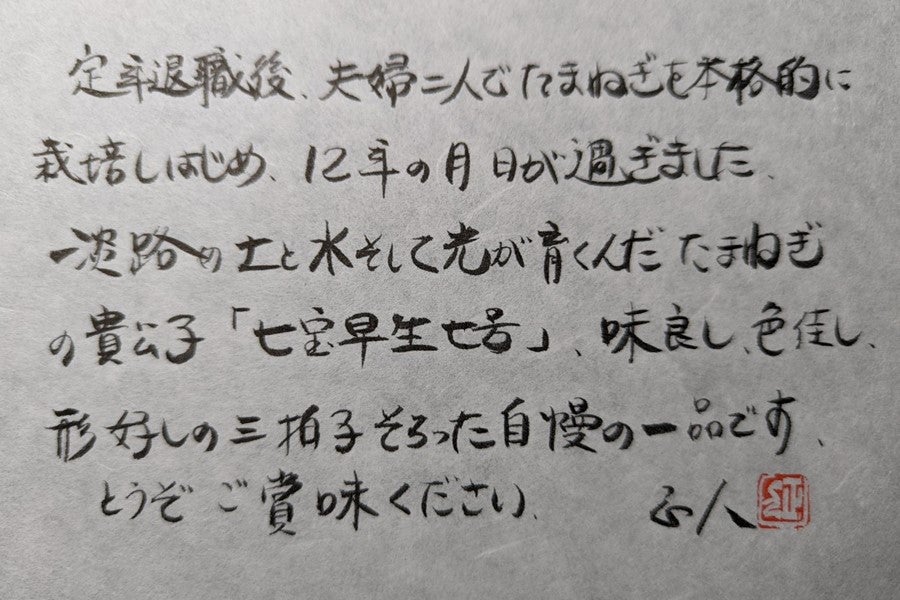 定年退職後、夫婦二人でたまねぎを本格的に
栽培しはじめ、12年の月日が過ぎました、
淡路の土と水そして光が育くんだたまねぎ
の貴公子「七宝早生七号」、味良し、色佳し、
形好しの三拍子そろった自慢の一品です、
とうぞご賞味ください、 正人